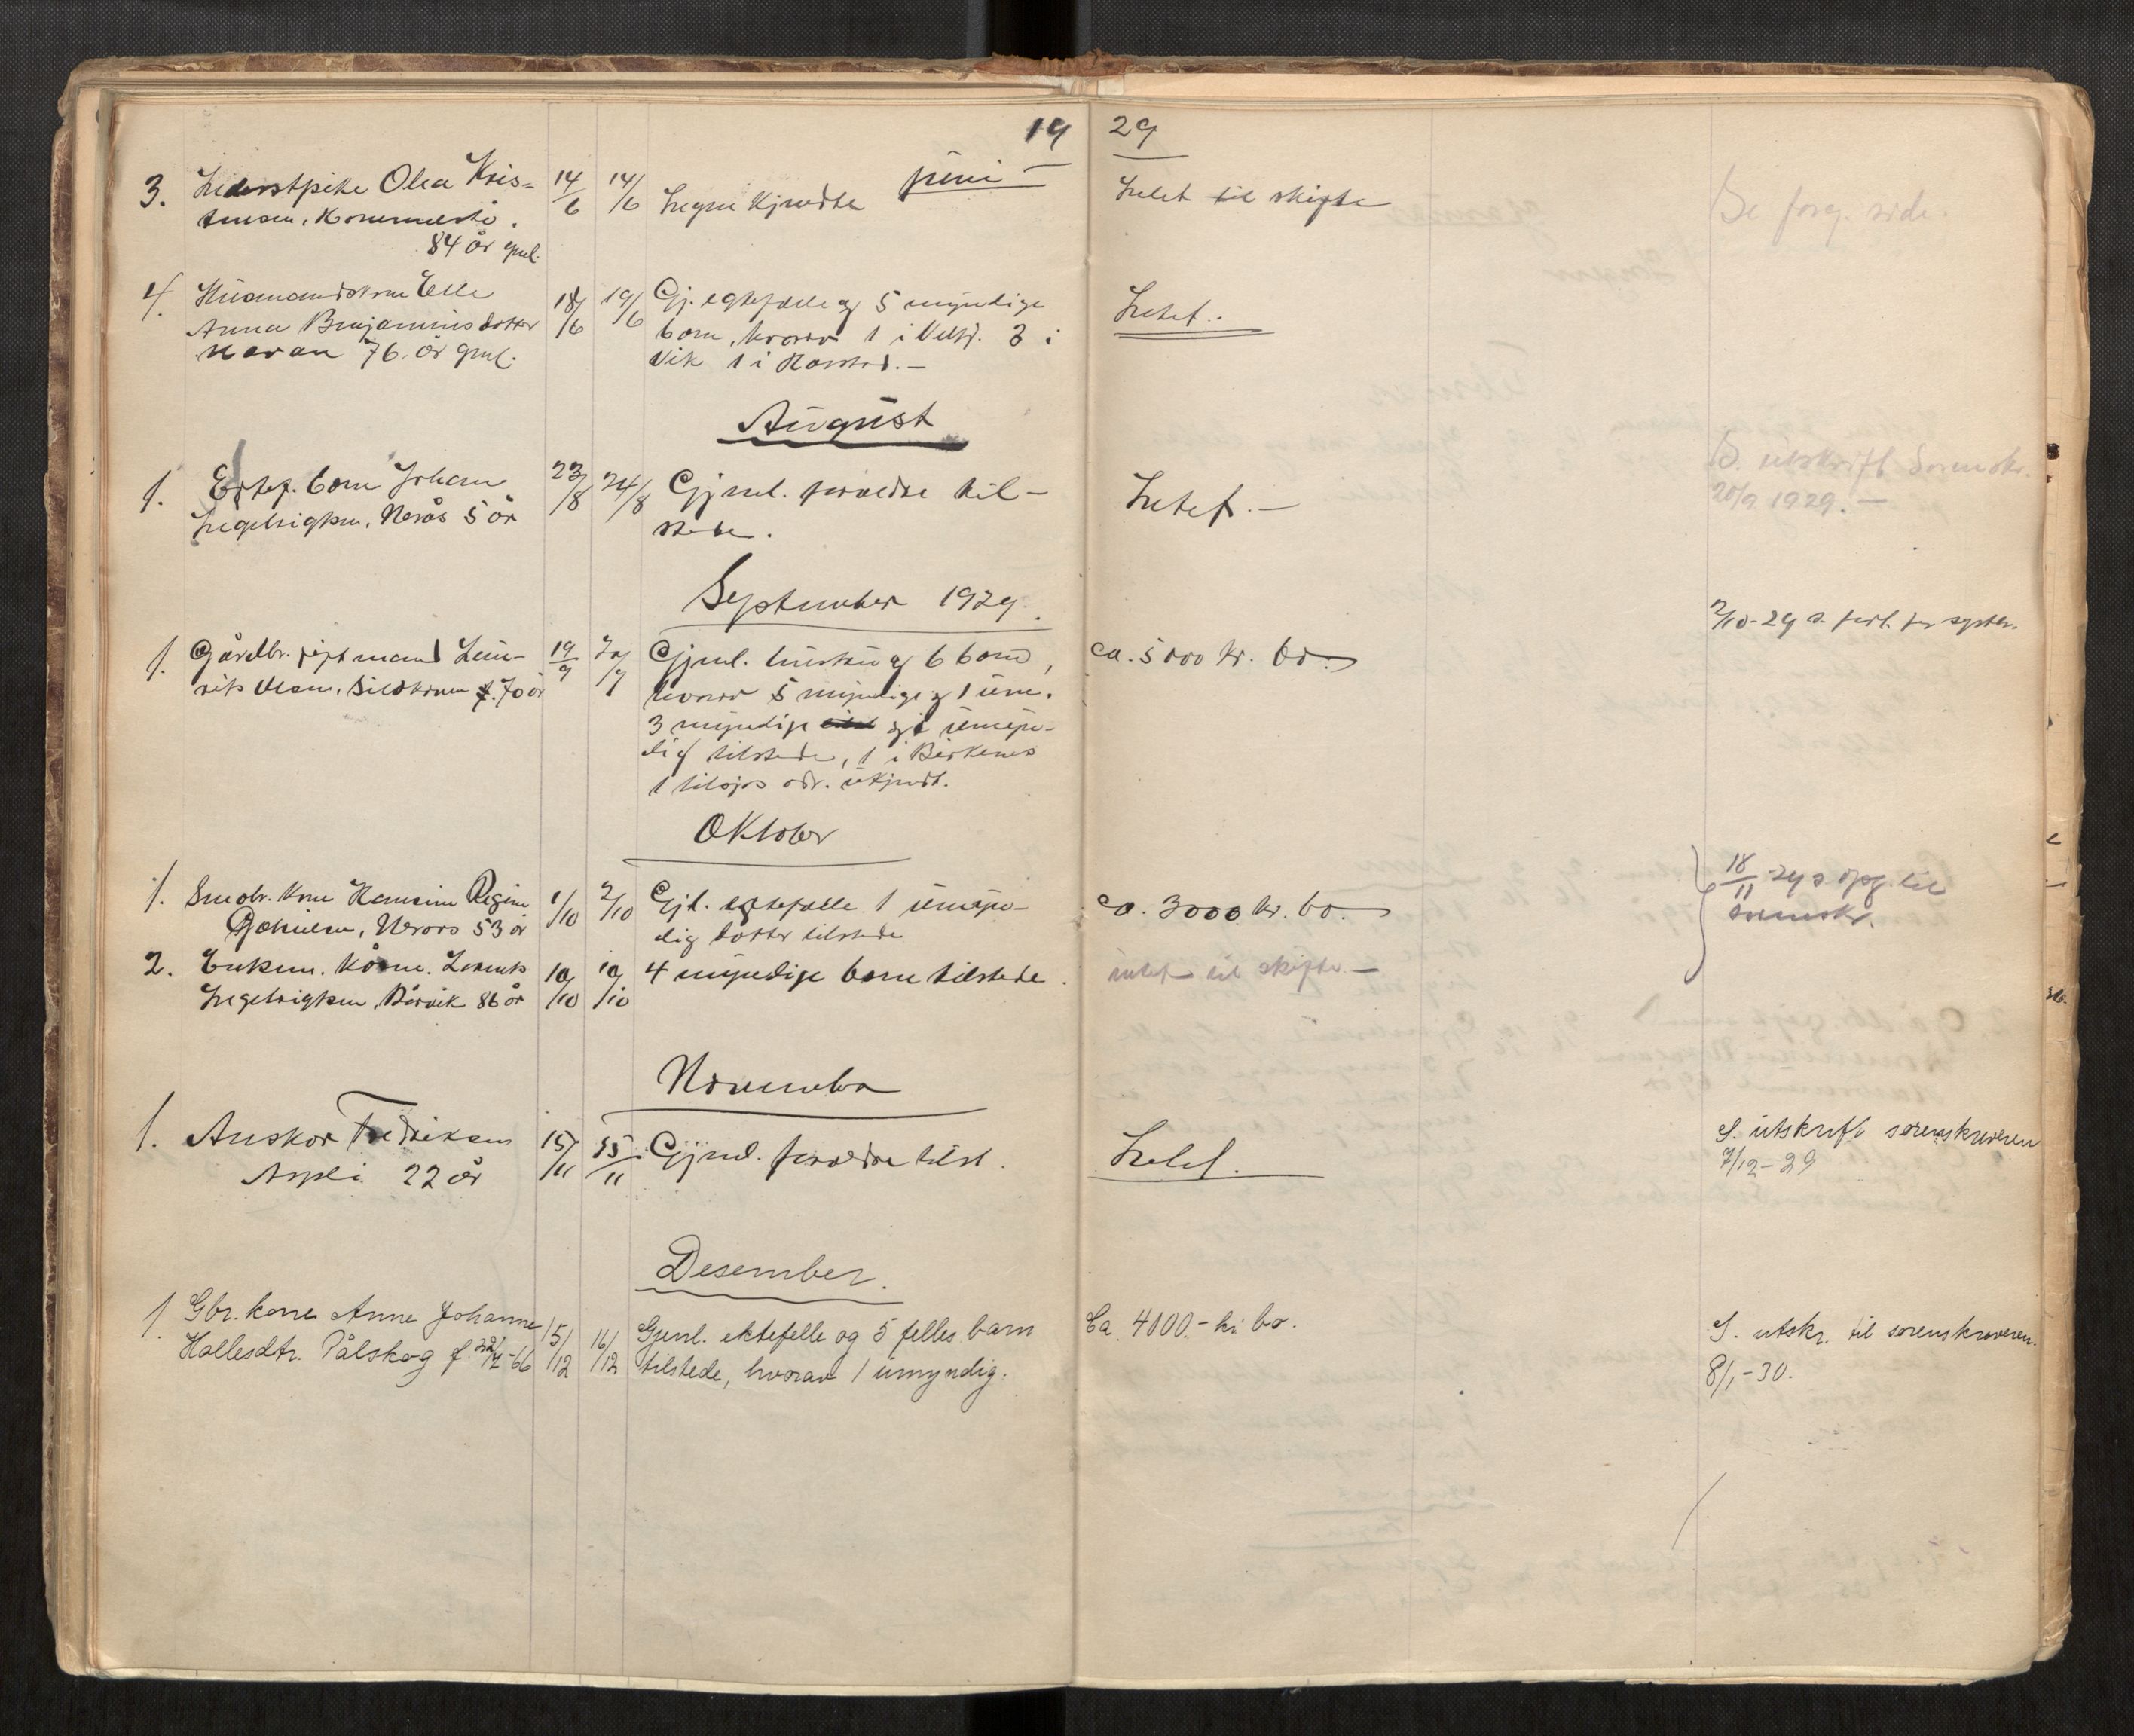 19 29
juni
3. Olea Kris=
14/6 14/6 Ingen kjendte
Intet til skifte
Se forg. side.
84 år gml.
4. Husmandskone Elle
Anna Benjaminsdotter
76 år gml.
18/6 19/6 Gj. egtefælle og 5 myndige
born, hvorav 1 i Velfj. 3 i
Vik 1 i Harstad. —
Intet.
August
1. Egtef. barn Johan
Ingebrigtsen, Nerås 5 år
23/8 24/8 Gjenl. foreldre til-
stede.
Intet. —
S. utskrift Sorenskr.
20/9 1929. —
September 1929.
1. Gårdbr. gift mand Lau-
rits Olsen, 70 år
19/9 20/9 Gjenl. hustru og 6 born,
hvorav 5 myndige og 1 um.
3 myndige og 1 umyn-
dig tilstede, 1 i Birkenes
1 tilsjøs adr. ukjendt.
ca. 5000 kr. bo.
2/10-29 s.
Oktober
1. Smobr. kone Hansine Regine
53 år
1/10 2/10 Gjl. egtefælle 1 umyn-
dig dotter tilstede
ca. 3000 kr. bo.
18/11 29 s. opg. til
sorenskr.
2. Enkem.
Ingebrigtsen, 86 år
10/10 10/10 4 myndige born tilstede.
intet til skifte. —
November
1. Anskar Fredriksen
Aspli 22 år
15/11 15/11 Gjenl. foreldre tilst.
Intet.
S. utskrift sorenskriveren
7/12-29
Desember.
1. Gbr. kone Anne Johanne
Hallesdtr. Pålskog f. -66
15/12 16/12 Gjenl. ektefelle og 5 felles barn
tilstede, hvorav 1 umyndig.
Ca. 4000.- kr. bo.
S. utskr. til sorenskriveren.
8/1-30.